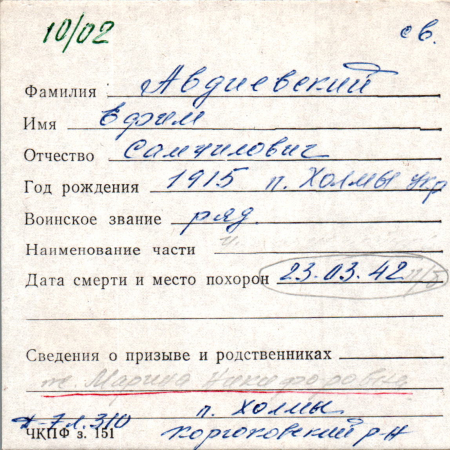 10/02 св.
Фамилия Авдиевский
Имя Ефим
Отчество Самуилович
Год рождения 1915 п. Холмы Укр
Воинское звание ряд.
Наименование части
Дата смерти и место похорон 23.03.42 п/б
Сведения о призыве и родственниках
Марина Никифоровна
п. Холмы
ЧКПФ з. 151 Корюковский р-н